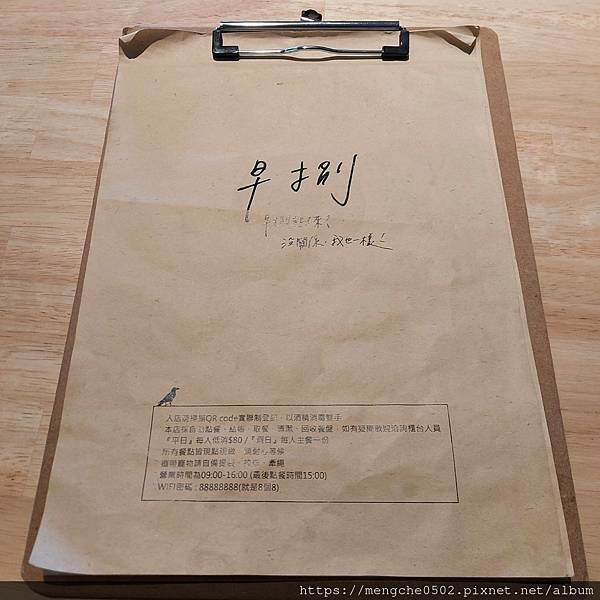 早捌
早捌起床?
沒關係,我也一樣!
入店須掃描QR code實聯制登記,以酒精消毒雙手
本店採自助點餐、結帳、取餐、清潔、回收餐盤,如有疑問歡迎洽詢櫃台人員
『平日』每人低消$80 /『假日』每人主餐一份
所有餐點皆現點現做 須耐心等候
攜帶寵物請自備提袋、推車、牽繩
營業時間為09:00-16:00 (最後點餐時間15:00)
WIFI密碼 : 88888888(就是8個8)
https://mengche0502.pixnet.net/album